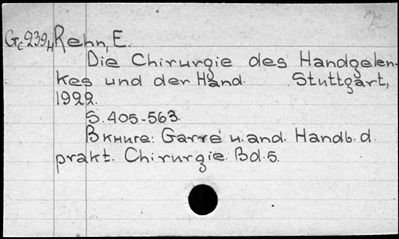 Gc239н Rehn, E.
Die Chirurgie des Handgelen-
kes und der Hand. Stuttgart,
1922.
S. 405-563.
В книге: Garré и. and. Handb. d.
prakt. Chirurgie. Bd. 5.